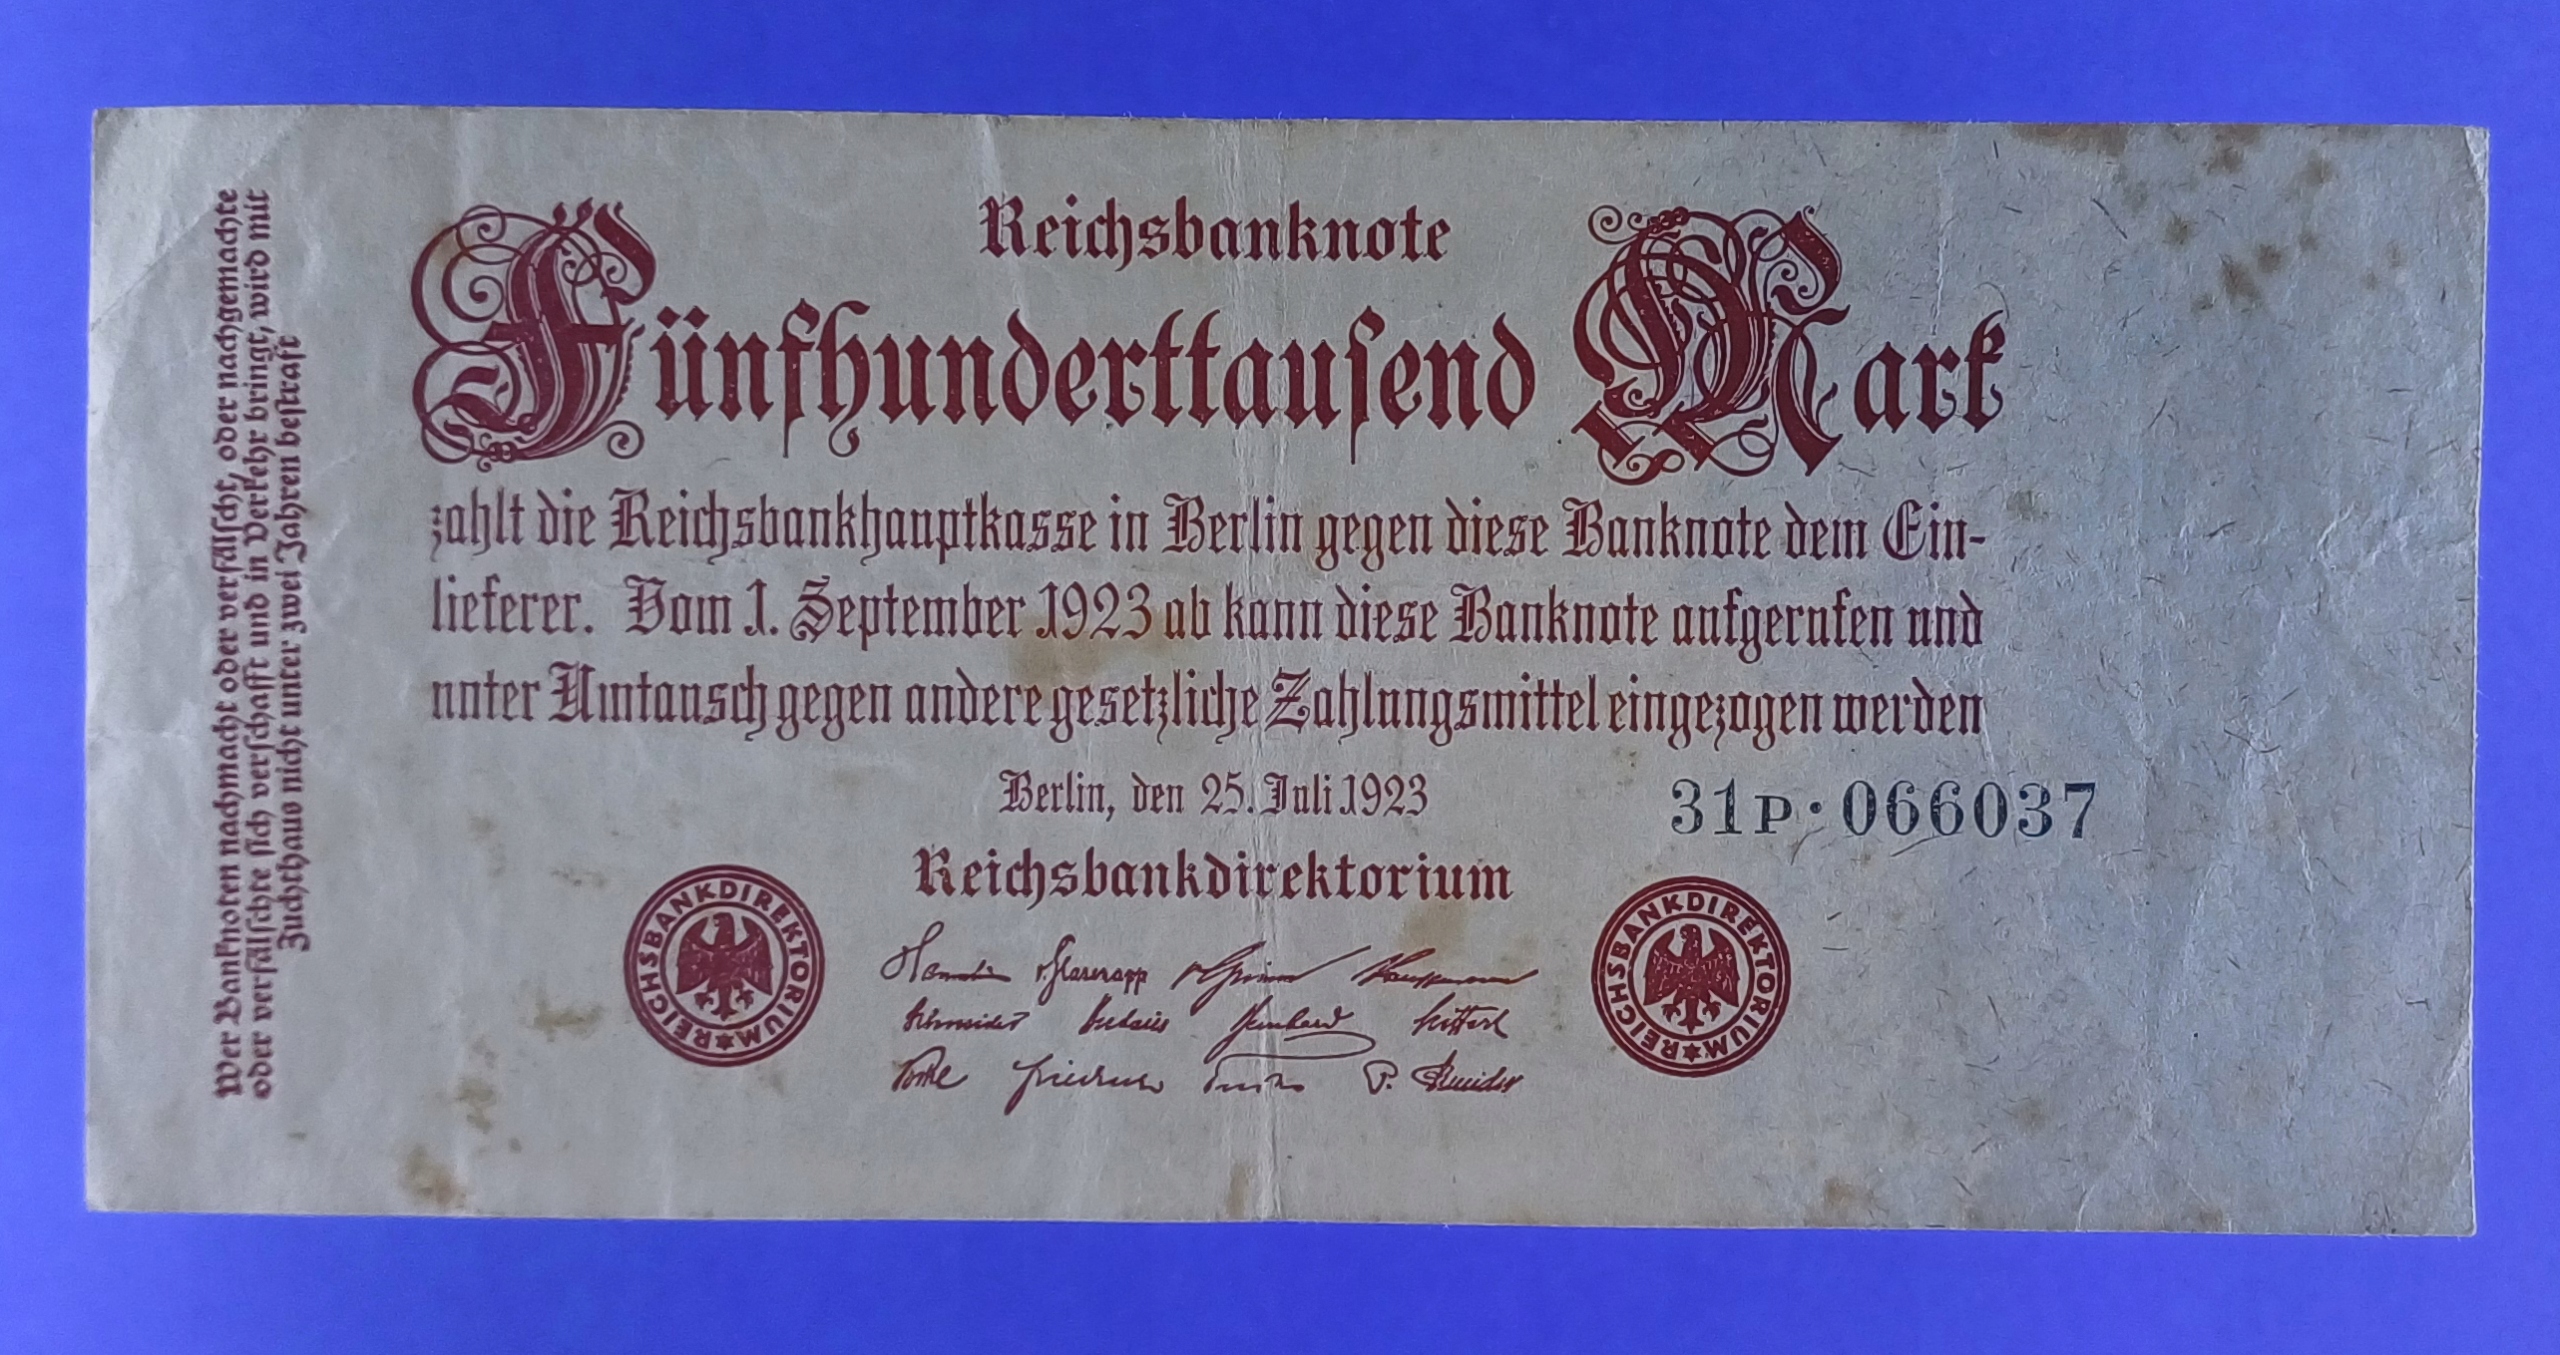 Reichsbanknote
Fünfhunderttausend Mark
zahlt die Reichsbankhauptkasse in Berlin gegen diese Banknote dem Ein-
lieferer. Vom 1. September 1923 ab kann diese Banknote aufgerufen und
unter Umtausch gegen andere gesetzliche Zahlungsmittel eingezogen werden
Berlin, den 25. Juli 1923
31P·066037
Reichsbankdirektorium
REICHSBANKDIREKTORIUM
REICHSBANKDIREKTORIUM
v. Glasenapp v. Grimm Kauffmann
Schneider Budczies Bernhard Seiffert
Vocke Friedrich Fuchs P. Schneider
Wer Banknoten nachmacht oder verfälscht, oder nachgemachte
oder verfälschte sich verschafft und in Verkehr bringt, wird mit
Zuchthaus nicht unter zwei Jahren bestraft